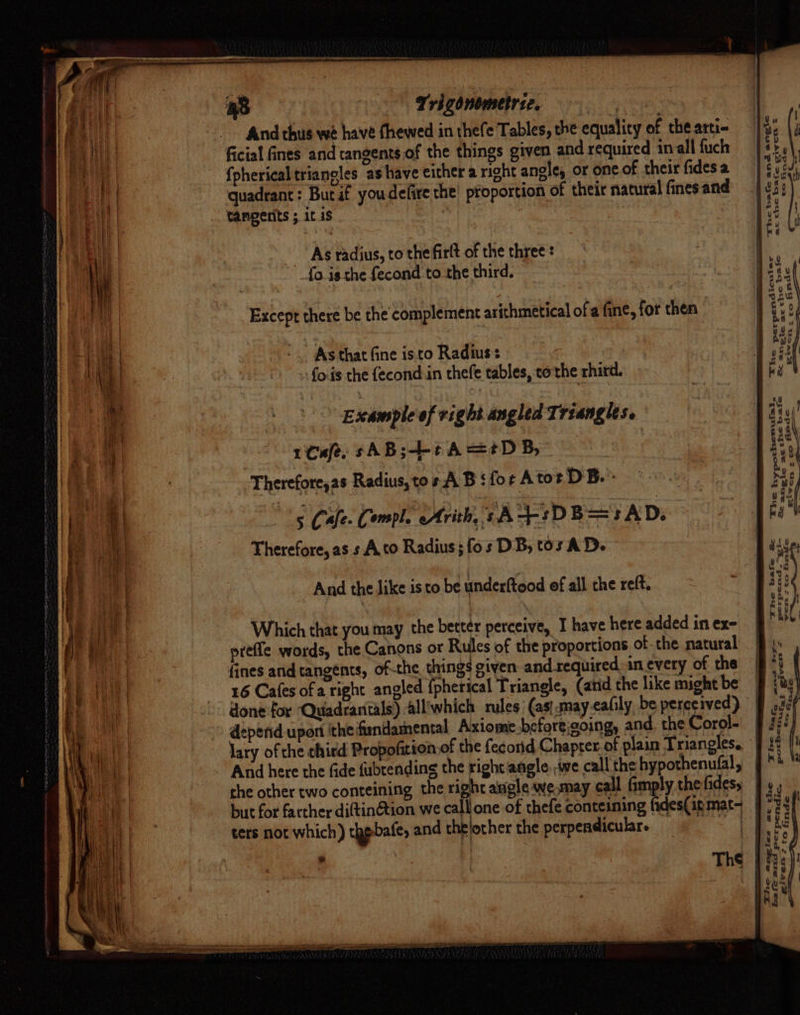 48 Trigonometrie.
And thus we have ſhewed in theſe Tables, the equality of the arti-
ficial ſines and tangents of the things given and required in all ſuch
ſpherical triangles as have either a right angle, or one of their ſides a
quadrant: But if you deſire the proportion of their natural ſines and
tangents; it is
As radius, to the firſt of the three:
ſo is the ſecond to the third.
Except there be the complement arithmetical of a ſine, for then
As that ſine is to Radius:
ſo is the ſecond in theſe tables, to the third.
Example of right angled Triangles.
1 Caſe. sAB;+tA=tDB,
Therefore, as Radius, to s AB: ſo t A to t DB.
5 Caſe. Compl. Arith. sA+sDB=sAD.
Therefore, as s A to Radius; ſo s DB, to s AD.
And the like is to be underſtood of all the reſt.
Which that you may the better perceive, I have here added in ex-
preſſe words, the Canons or Rules of the proportions of the natural
ſines and tangents, of the things given and required in every of the
16 Caſes of a right angled ſpherical Triangle, (and the like might be
done for Quadrantals) all which rules (as may eaſily be perceived)
depend upon the fundamental Axiome before going, and the Corol-
lary of the third Propoſition of the ſecond Chapter of plain Triangles.
And here the ſide ſubtending the right angle we call the hypothenuſal,
the other two conteining the right angle we may call ſimply the ſides,
but for farther diſtinction we call one of theſe conteining ſides (it mat-
ters not which) the baſe, and the other the perpendicular.
The